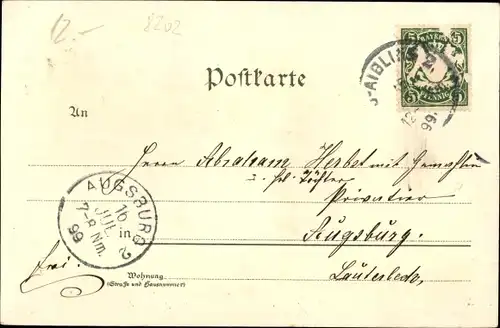 12.-
8202
BAYERN
5 5
PFENNIG
AIBLING
99.
Postkarte
An
Herrn Abraham Herbst mit Gemahlin
u. frl. Töchter
Privatier
Augsburg.
Lauterlech,
AUGSBURG
16
JUL.
7-8 Nm.
99
2
frei.
Wohnung
(Straße und Hausnummer)